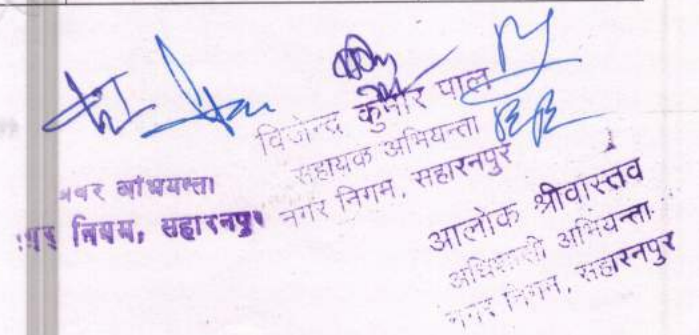 अवर अभियन्ता
नगर निगम, सहारनपुर
विजेन्द्र कुमार पाल
सहायक अभियन्ता
नगर निगम, सहारनपुर
आलोक श्रीवास्तव
अधिशासी अभियन्ता
नगर निगम, सहारनपुर